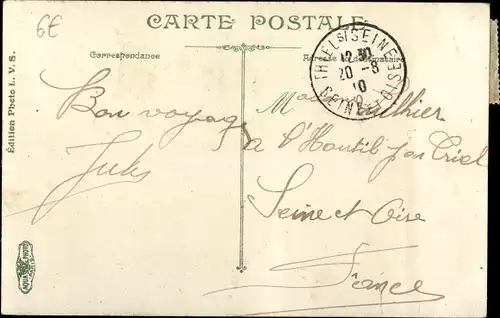 6€
CARTE POSTALE
Correspondance
Adresse du destinataire
TRIEL S/ SEINE
SEINE-ET-OISE
12 30
20 - 8
10
Édition Photo L. V. S.
Bon voyage
Jules
à l'Hautil par Triel
Seine et Oise
France
AQUA PHOTO